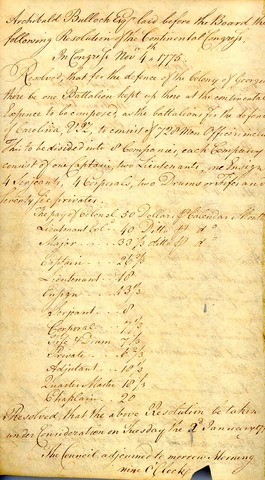 Archibald Bulloch Esqr. laid before the Board the
following Resolution of the Continental Congress.
In Congress Novr. 4th 1775.
Resolved, that for the defence of the Colony of Georgia
there be one Battalion kept up there at the continental
Expence to be composed, as the battalions for the defence
of Carolina, Vizt. to consist of 728 Men Officers inclu
ded to be divided into 8 Companies, each Company
consist of one Captain, two Lieutenants, one Ensign
4 Serjeants, 4 Corporals, two Drums or Fifes and
seventy six privates.
The pay of Colonel 50 Dollars Calendar Month
Lieutenant Col. 40 Ditto
Major 33 1/3 ditto
Captain 26 2/3
Lieutenant 18
Ensign 13 1/3
Serjeant 8
Corporal 7 1/3
Fife & Drum 7 1/3
Private 6 2/3
Adjutant 18 1/3
Quarter Master 18 1/3
Chaplain 20
Resolved, that the above Resolution be taken
under Consideration on Tuesday the 2d January
The Council adjourned to morrow Morning
nine O'Clock